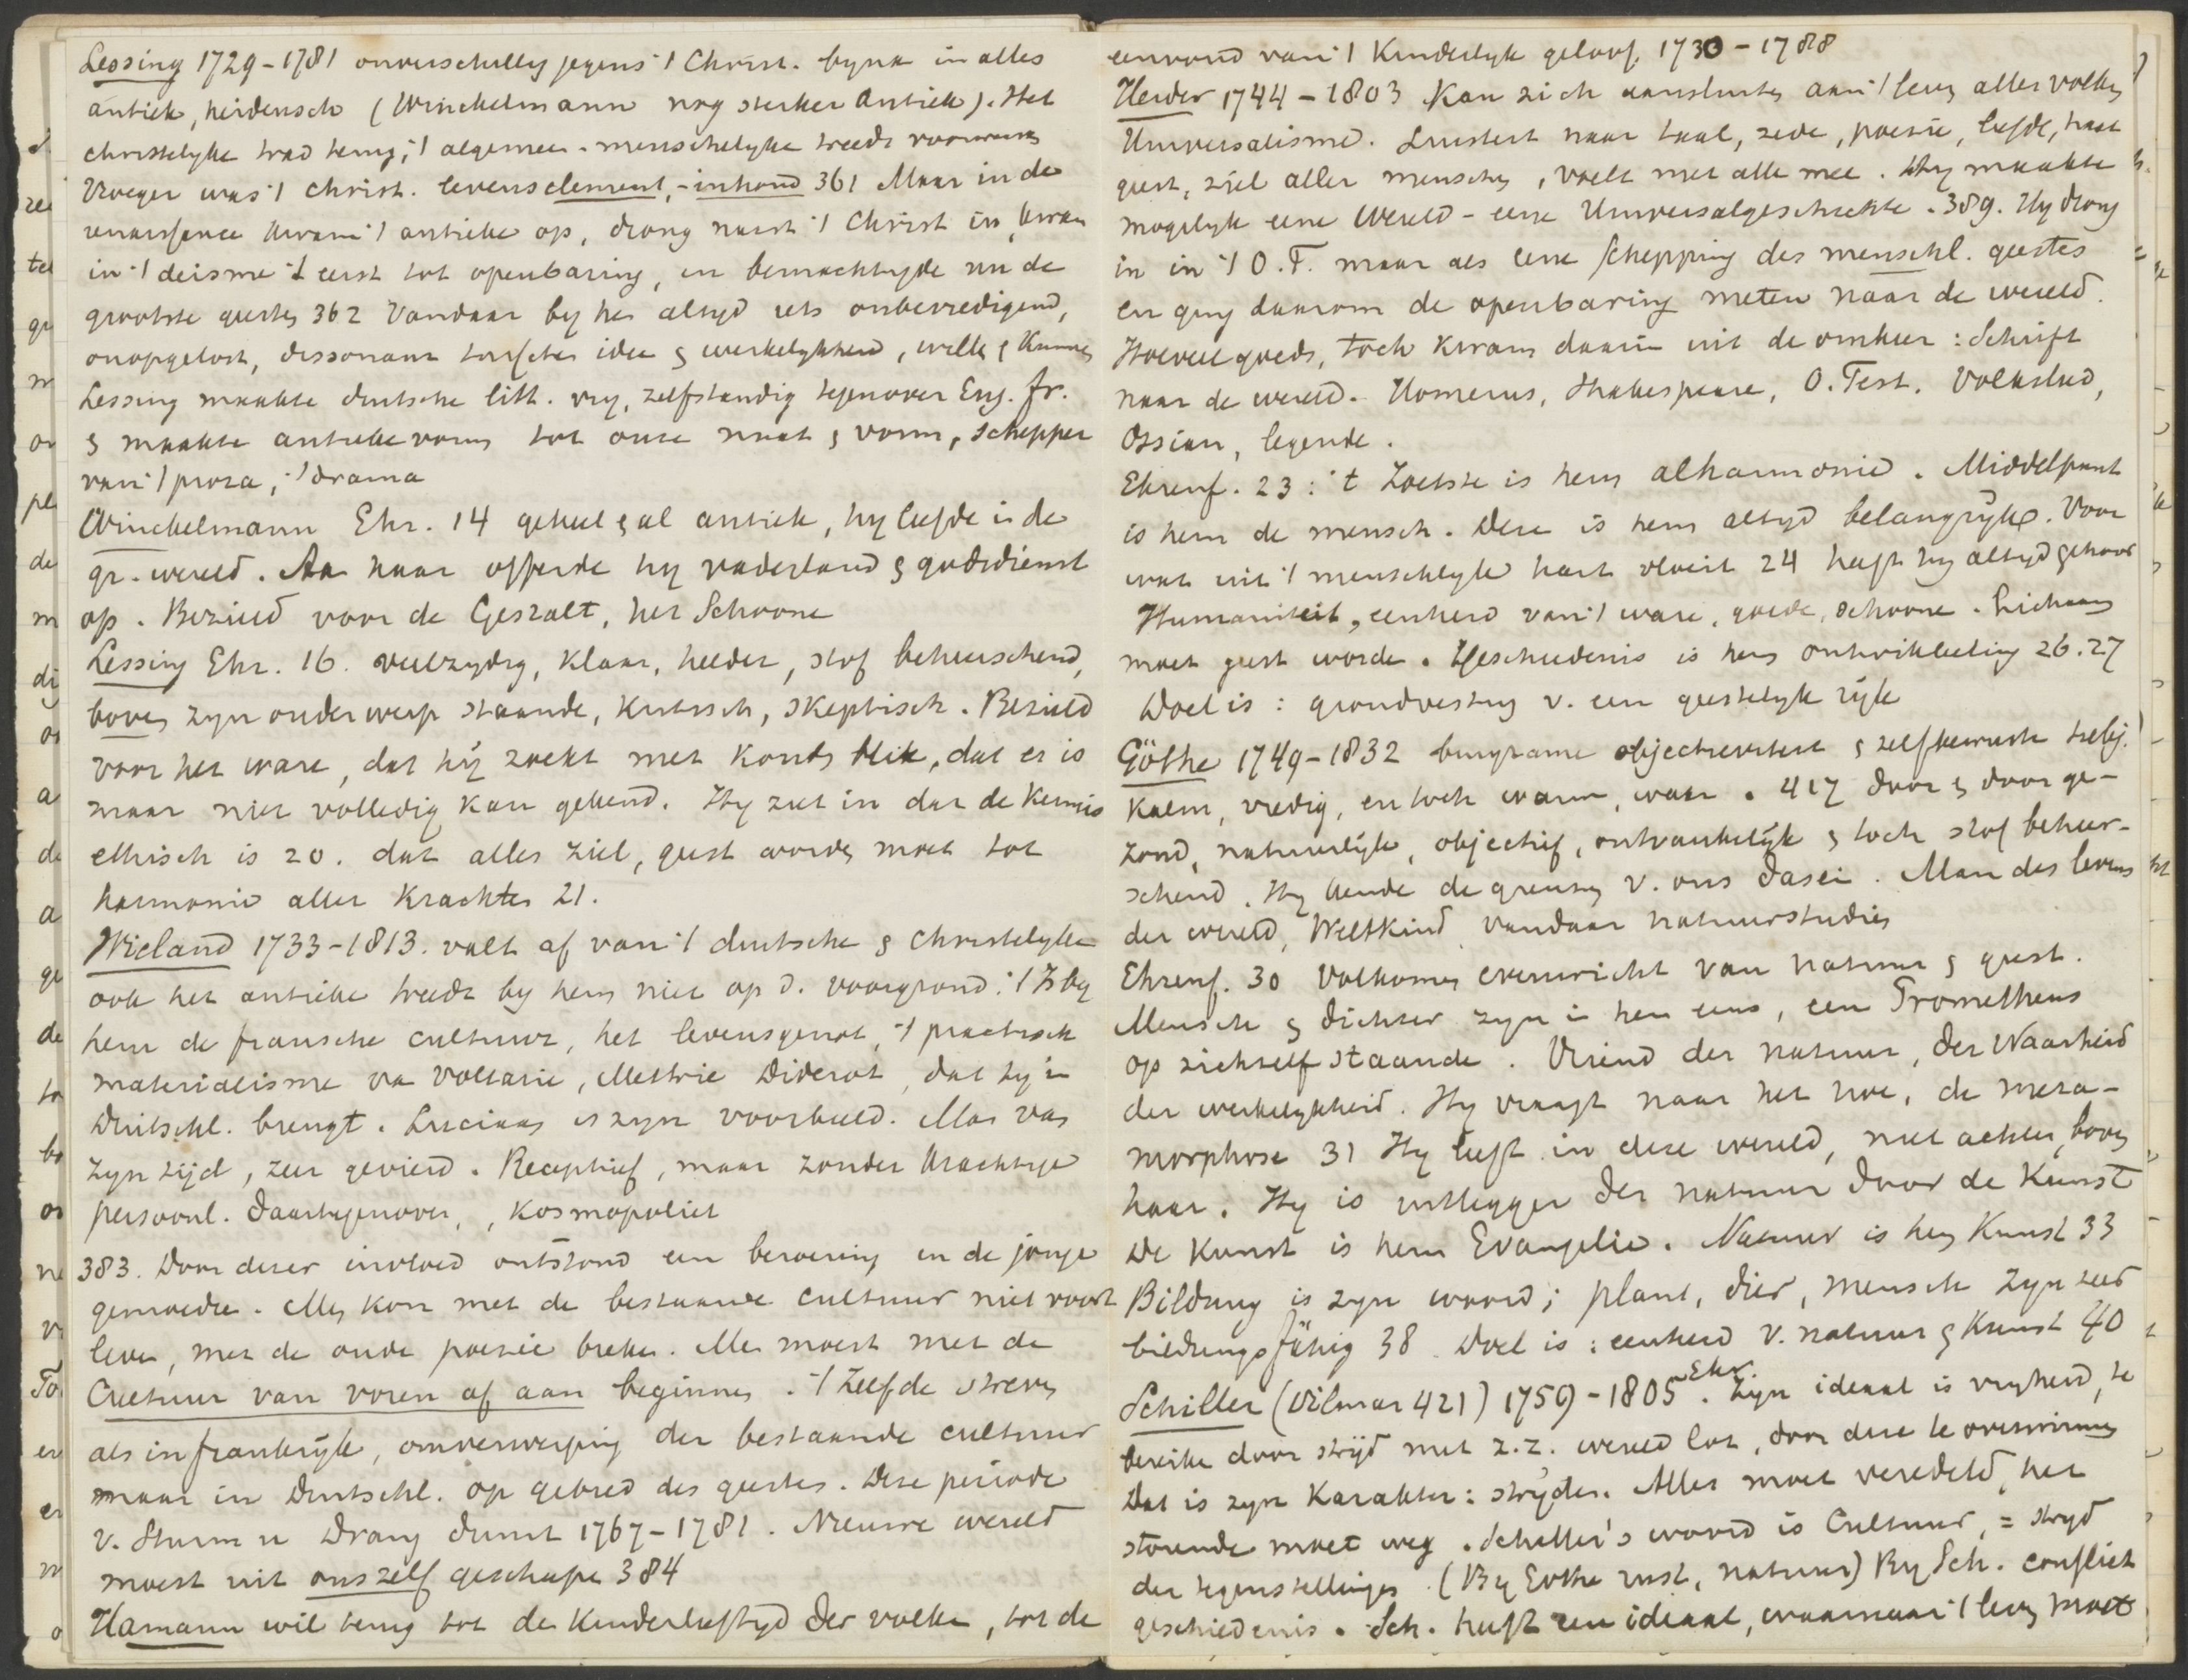 Lessing 1729-1781 onverschillig jegens 't Christ. byna in alles
antiek, heidensch (Winckelmann nog sterker antiek). Het
christelyke trad terug, 't algemeen-menschelyke treedt voorwaarts
Vroeger was 't Christ. levenselement, -inhoud 361 Maar in de
renaissance kwam 't antieke op, drong naast 't Christ in, kwam
in 't deisme 't eerst tot openbaring, en bemachtigde nu de
grootste geesten 362 Vandaar by hen altyd iets onbevredigend,
onopgelost, dissonant tusschen idee & werkelykheid, willen & kunnen
Lessing maakte duitsche litt. vry, zelfstandig tegenover Eng. fr.
& maakte antieke vorm tot onze maat & vorm, schepper
van 't proza, 't drama
Winckelmann Ehr. 14 geheel & al antiek, hy leefde in de
gr. wereld. Aan haar offerde hy vaderland & godsdienst
op. Bezield voor de Gestalt, het Schoone
Lessing Ehr. 16. veelzydig, klaar, helder, stof beheerschend,
boven zyn onderwerp staande, kritisch, skeptisch. Bezield
voor het ware, dat hy zoekt met kouden blik, dat er is
maar niet volledig kan gekend. Hy ziet in dat de kennis
ethisch is 20. dat alles ziel, geest worden moet tot
harmonie aller krachten 21.
Wieland 1733-1813. valt af van 't duitsche & christelyke
ook het antieke treedt by hem niet op d. voorgrond. 't Is by
hem de fransche cultuur, het levensgenot, 't practisch
materialisme van Voltaire, Mettrie Diderot, dat hy in
Duitschl. brengt. Luciaan is zyn voorbeeld. Man van
zyn tijd, zeer gevierd. Receptief, maar zonder krachtige
persoonl. daartegenover, kosmopoliet
383. Door dezen invloed ontstond een beroering in de jonge
gemoederen. Men kon met de bestaande cultuur niet voort
leven, met de oude poezie breken. Men moest met de
Cultuur van voren af aan beginnen. 't Zelfde streven
als in frankrijk, omverwerping der bestaande cultuur
maar in Duitschl. op gebied des geestes. Deze periode
v. Sturm u Drang duurt 1767-1781. Nieuwe wereld
moest uit onszelf geschapen 384
Hamann wil terug tot de kinderleeftyd der volken, tot de
eenvoud van 't kinderlyk geloof. 1730-1788
Herder 1744-1803 kan zich aansluiten aan 't leven aller volken
Universalisme. Luistert naar taal, zede, poezie, liefde, haat
geest, ziel aller menschen, voelt met alle mee. Hy maakte
mogelyk eene Wereld- eene Universalgeschichte. 389. Hy drong
in in 't O.T. maar als eene schepping des menschl. geestes
en ging daarom de openbaring meten naar de wereld.
Hoeveel goeds, toch kwam daarin uit de omkeer: Schrift
naar de wereld. Homerus, Shakespeare, O. Test. Volkslied,
Ossian, legende.
Ehrenf. 23: 't Zoetste is hem alharmonie. Middelpunt
is hem de mensch. Deze is hem altyd belangryk. Voor
wat uit 't menschelyk hart vloeit 24 heeft hy altyd gehoor
Humaniteit, eenheid van 't ware, goede, schoone. Lichaam
moet geest worden. Geschiedenis is hem ontwikkeling 26.27
Doel is: grondvesting v. een geestelyk rijk
Göthe 1749-1832 objectiviteit & zelfbewuste
kalm, vredig, en toch warm, waar. 417 door & door ge-
zond, natuurlijk, objectief, ontvankelijk & toch stof beheer-
schend. Hy kende de grenzen v. ons Dasein. Man des levens
der wereld, Weltkind vandaar natuurstudien
Ehrenf. 30 Volkomen evenwicht van natuur & geest.
Mensch & dichter zyn in hem eens, een Prometheus
op zichzelf staande. Vriend der natuur, der Waarheid
der werkelykheid. Hy vraagt naar het hoe, de meta-
morphose 31 Hy leeft in deze wereld, niet achter, boven
haar. Hy is uitlegger der natuur door de Kunst
De kunst is hem Evangelie. Natuur is hem Kunst 33
Bildung is zyn woord; plant, dier, mensch zyn
bildungsfähig 38 Doel is: eenheid v. natuur & Kunst 40
Schiller (Vilmar 421) 1759-1805 Ehr. Zyn ideaal is vryheid, te
bereiken door strijd met z.z. wereld lot, door deze te overwinnen
Dat is zyn karakter: stryden. Alles moet veredeld, het
storende moet weg. Schiller's woord is Cultuur, = stryd
der tegenstellingen. (By Gothe rust, natuur) By Sch. conflict
geschiedenis. Sch. heeft een ideaal, waarnaar 't leven moet